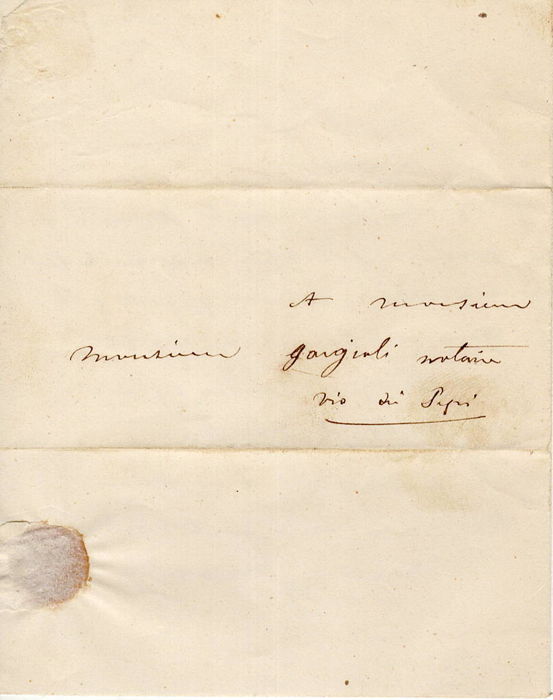 A monsieur
Monsieur gargioli notaire
via dei Pepi